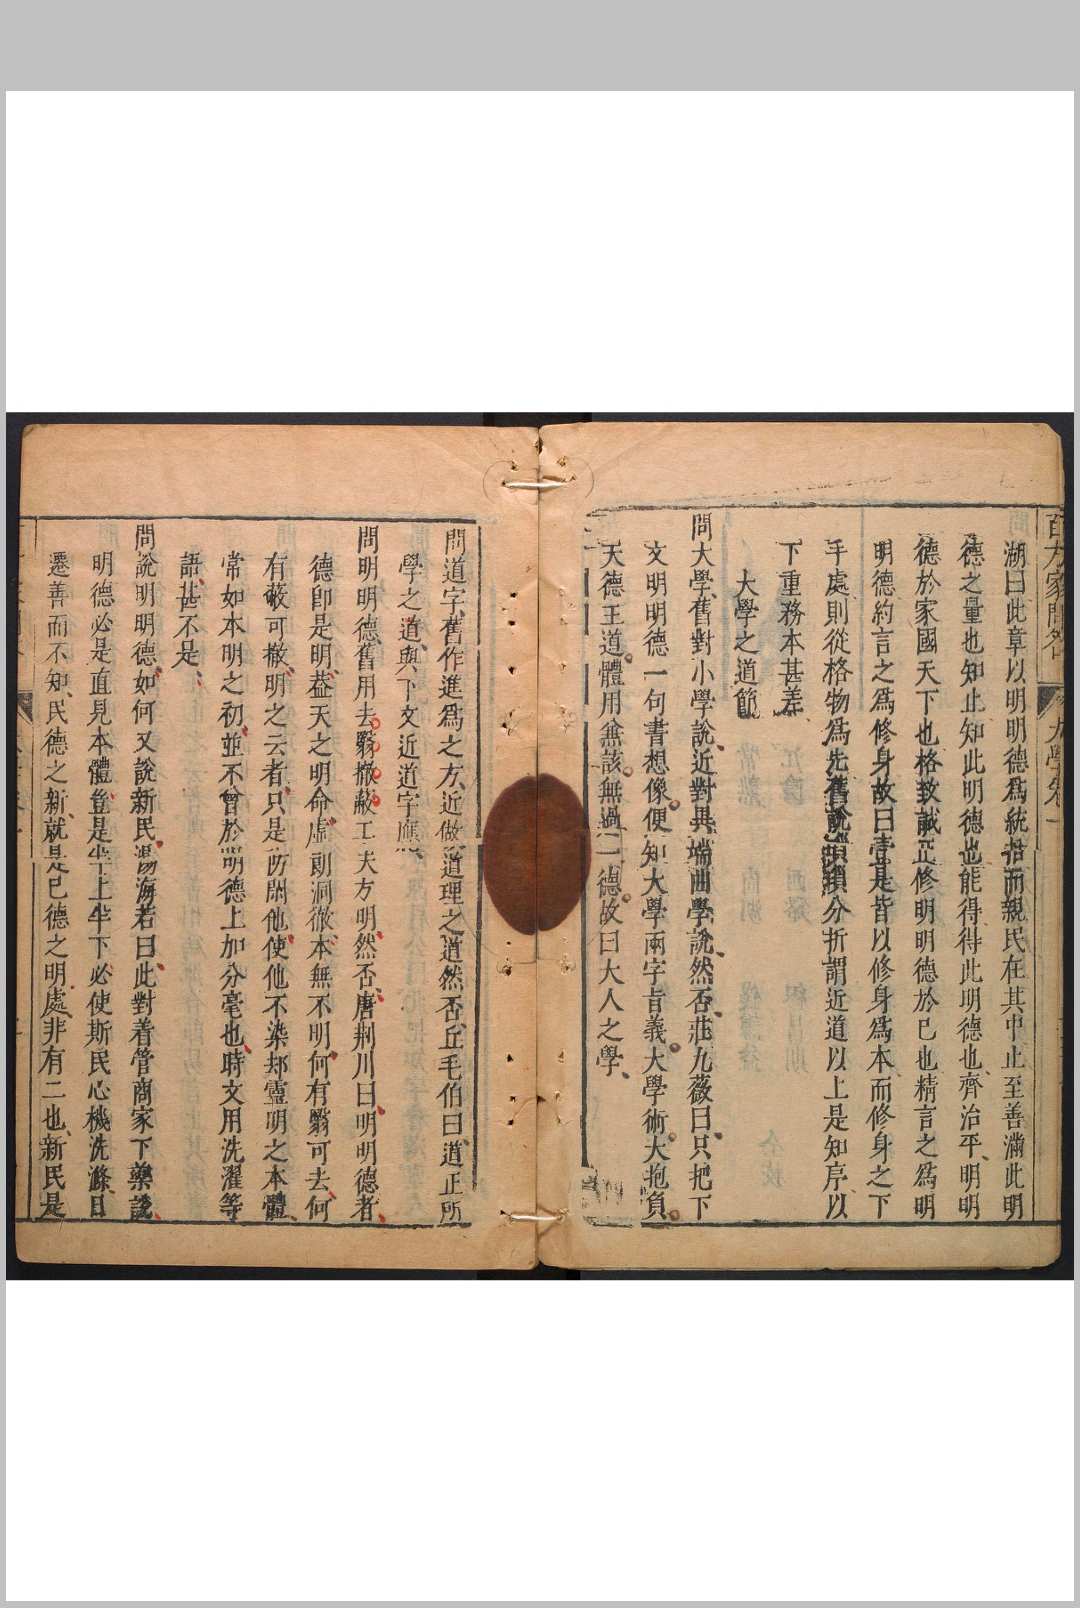 百方家問答 大學卷一
湖曰此章以明明德為統括而親民在其中止至善滿此明
德之量也知止知此明德也能得得此明德也齊治平明明
德於家國天下也格致誠正修明明德於己也精言之為明
明德約言之為修身故曰壹是皆以修身為本而修身之下
手處則從格物為先舊說瑣瑣分折謂近道以上是知序以
下重務本甚差
大學之道節
問大學舊對小學說近對異端曲學說然否莊九薇曰只把下
文明明德一句書想像便知大學兩字旨義大學術大抱負
天德王道體用兼該無過一德故曰大人之學
問道字舊作進為之方近做道理之道然否丘毛伯曰道正所
學之道與下文近道字應
問明明德舊用去翳撤蔽工夫方明然否唐荊川曰明明德者
德卽是明葢天之明命虛朗洞徹本無不明何有翳可去何
有蔽可撤明之云者只是防閑他使他不染却靈明之本體
常如本明之初並不曾於明德上加分毫也時文用洗濯等
語甚不是
問說明明德如何又說新民湯海若曰此對着管商家下藥說
明德必是直見本體豈是半上半下必使斯民心機洗滌日
遷善而不知民德之新就是己德之明處非有二也新民是